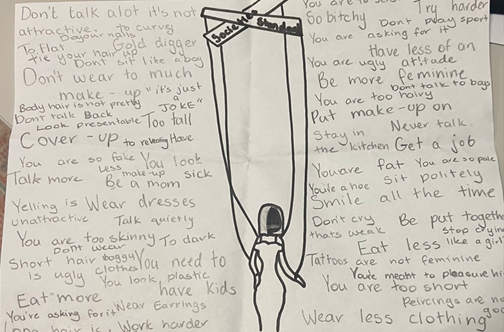 Don't talk alot it's not
attractive. to curvy
Do your nails
To flat Gold digger
tie your hair up
Don't sit like a boy
Don't wear to much
make-up "it's just
a
JOKE"
Body hair is not pretty
Don't talk Back
Look presentable Too tall
Cover-up to revealing Have
You are so fake You look
Talk more Less make-up sick
Be a mom
Yelling is Wear dresses
unattractive Talk quietly
You are too skinny To dark
Dont wear
boggy clothes
Short hair You need to
is ugly have kids
You look plastic
Eat more
You're asking for it Wear Earrings
hair is Work harder
Societies Standards
You are to
So bitchy Try harder
Don't play sport
You are asking for it
Have less of an
You are ugly attitude
Be more feminine
Dont talk to boys
You are too hairy
Put make-up on
Stay in Never talk.
the kitchen Get a job
You are fat You are so pale
You're a hoe Sit politely
Smile all the time
Don't cry Be put together
thats weak Stop crying
Eat less like a girl
Tattoos are not feminine
You're meant to pleasure hi
You are too short
Peircings are no
Wear less clothing